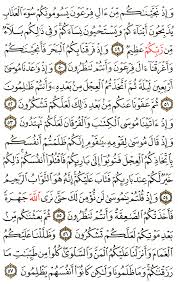 وَإِذْ نَجَّيْنَٰكُم مِّنْ ءَالِ فِرْعَوْنَ يَسُومُونَكُمْ سُوٓءَ ٱلْعَذَابِ
يُذَبِّحُونَ أَبْنَآءَكُمْ وَيَسْتَحْيُونَ نِسَآءَكُمْ وَفِى ذَٰلِكُم بَلَآءٌ
مِّن رَّبِّكُمْ عَظِيمٌ ٤٩ وَإِذْ فَرَقْنَا بِكُمُ ٱلْبَحْرَ فَأَنجَيْنَٰكُمْ
وَأَغْرَقْنَآ ءَالَ فِرْعَوْنَ وَأَنتُمْ تَنظُرُونَ ٥٠ وَإِذْ وَٰعَدْنَا مُوسَىٰٓ
أَرْبَعِينَ لَيْلَةً ثُمَّ ٱتَّخَذْتُمُ ٱلْعِجْلَ مِنۢ بَعْدِهِۦ وَأَنتُمْ ظَٰلِمُونَ
٥١ ثُمَّ عَفَوْنَا عَنكُم مِّنۢ بَعْدِ ذَٰلِكَ لَعَلَّكُمْ تَشْكُرُونَ ٥٢
وَإِذْ ءَاتَيْنَا مُوسَى ٱلْكِتَٰبَ وَٱلْفُرْقَانَ لَعَلَّكُمْ تَهْتَدُونَ ٥٣
وَإِذْ قَالَ مُوسَىٰ لِقَوْمِهِۦ يَٰقَوْمِ إِنَّكُمْ ظَلَمْتُمْ أَنفُسَكُم
بِٱتِّخَاذِكُمُ ٱلْعِجْلَ فَتُوبُوٓا۟ إِلَىٰ بَارِئِكُمْ فَٱقْتُلُوٓا۟ أَنفُسَكُمْ
ذَٰلِكُمْ خَيْرٌ لَّكُمْ عِندَ بَارِئِكُمْ فَتَابَ عَلَيْكُمْ إِنَّهُۥ هُوَ ٱلتَّوَّابُ ٱلرَّحِيمُ
٥٤ وَإِذْ قُلْتُمْ يَٰمُوسَىٰ لَن نُّؤْمِنَ لَكَ حَتَّىٰ نَرَى ٱللَّهَ جَهْرَةً
فَأَخَذَتْكُمُ ٱلصَّٰعِقَةُ وَأَنتُمْ تَنظُرُونَ ٥٥ ثُمَّ بَعَثْنَٰكُم مِّنۢ
بَعْدِ مَوْتِكُمْ لَعَلَّكُمْ تَشْكُرُونَ ٥٦ وَظَلَّلْنَا عَلَيْكُمُ
ٱلْغَمَامَ وَأَنزَلْنَا عَلَيْكُمُ ٱلْمَنَّ وَٱلسَّلْوَىٰ كُلُوا۟ مِن طَيِّبَٰتِ مَا
رَزَقْنَٰكُمْ وَمَا ظَلَمُونَا وَلَٰكِن كَانُوٓا۟ أَنفُسَهُمْ يَظْلِمُونَ ٥٧